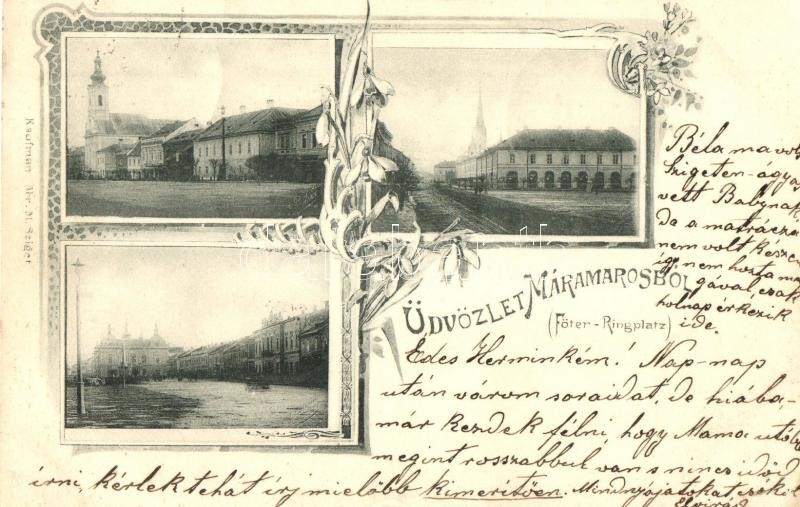 Kaufmann Mór, M. Sziget
ÜDVÖZLET MÁRAMAROSBÓL
(Főter-Ringplatz)
Béla ma volt
Szigeten - ágya
vett Babynak
de a matrácza
nem volt kész
így nem hozta ma
gával, csak
holnap érkezik
ide.
Édes Herminkém! Nap-nap
után várom soraidat, de hiába-
már kezdek félni, hogy Mama utób
megint rosszabbul van s nincs időd
írni, kérlek tehát írj mielőbb kimerítően. Mindnyájatokat csókol
Elvira